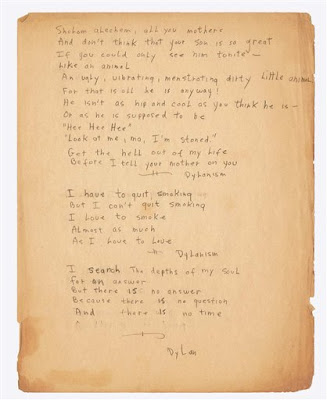 Shalom alechem, all you mothers
And don't think that your son is so great
If you could only see him tonite —
Like an animal
An ugly, vibrating, menstrating dirty little animal
For that is all he is anyway!
He isn't as hip and cool as you think he is —
Or as he is supposed to be
"Hee Hee Hee"
"Look at me, ma, I'm stoned."
Get the hell out of my life
Before I tell your mother on you
Dylanism
I have to quit smoking
But I can't quit smoking
I love to smoke
Almost as much
As I love to love
Dylanism
I search the depths of my soul
For an answer
But there is no answer
Because there is no question
And there is no time
Dylan